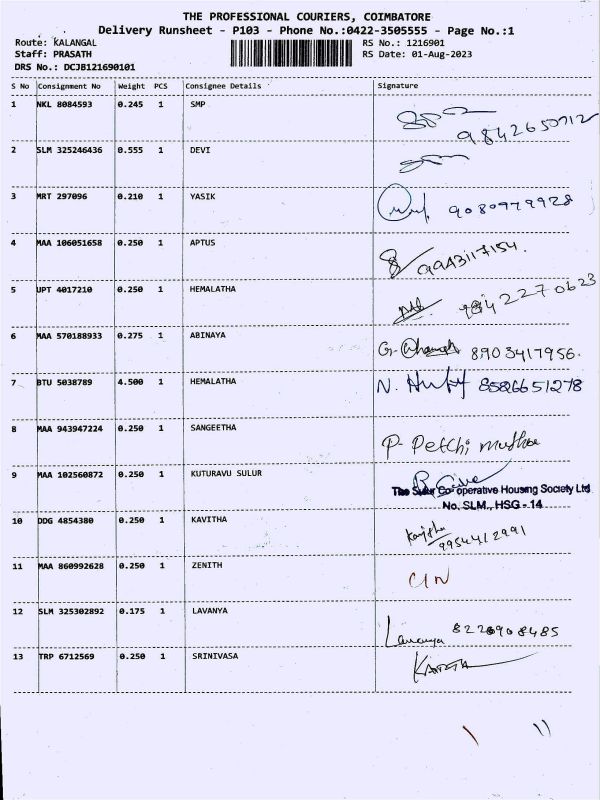 THE PROFESSIONAL COURIERS, COIMBATORE
Delivery Runsheet - P103 - Phone No.:0422-3505555 - Page No.:1
Route: KALANGAL RS No.: 1216901
Staff: PRASATH RS Date: 01-Aug-2023
DRS No.: DCJB121690101
S No Consignment No Weight PCS Consignee Details Signature
1 NKL 8084593 0.245 1 SMP
9842650712
2 SLM 325246436 0.555 1 DEVI
3 MRT 297096 0.210 1 YASIK
9080979928
4 MAA 106051658 0.250 1 APTUS
9943117154.
5 UPT 4017210 0.250 1 HEMALATHA
9842270623
6 MAA 570188933 0.275 1 ABINAYA
8903417956.
7 BTU 5038789 4.500 1 HEMALATHA
N. 8526651278
8 MAA 943947224 0.250 1 SANGEETHA
P. Petchi muthu
9 MAA 102560872 0.250 1 KUTURAVU SULUR
The Sulur Co-operative Housing Society Ltd
No. SLM., HSG - 14
10 DDG 4854380 0.250 1 KAVITHA
9954412991
11 MAA 860992628 0.250 1 ZENITH
12 SLM 325302892 0.175 1 LAVANYA
Lavanya 8220908485
13 TRP 6712569 0.250 1 SRINIVASA